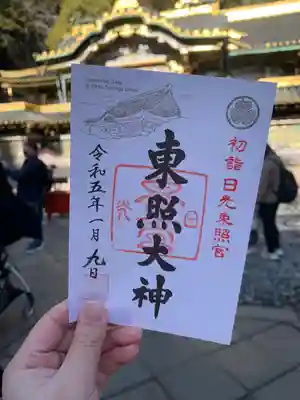 初詣 日光東照宮
東照大神
令和五年一月九日